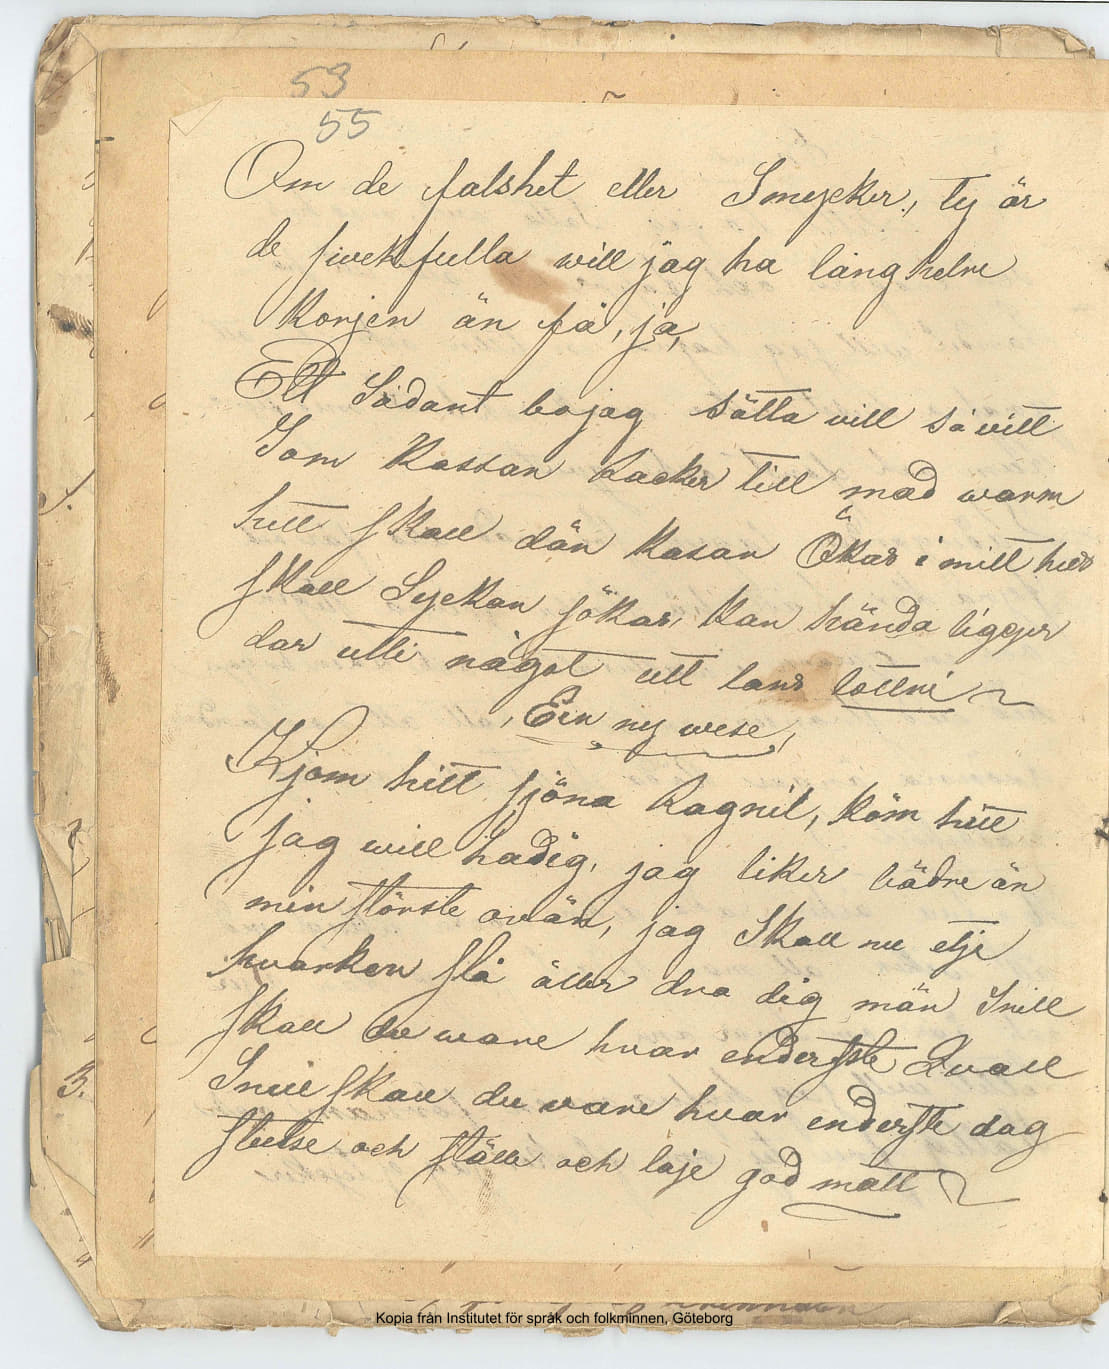 53
55
Om de falshet eller Smycker, ty är
de svekfulla will jag ha lång helre
Korjen än få, ja,
Ett Sådant bo jag sätta vill så vitt
Som Kassan Racker till mad warm
hitt skall dän kasan Ökas i mitt hus
skall Lyckan sökas, kan hända ligger
dar utti något utt lans lottni
Ein ny wese,
Kjom hitt sjöna Ragnil, köm hitt
jag will ha dig, jag liker bädre än
min störste ovän, jag Skall nu etje
hvarken slå äller dra dig män Snill
skall du ware hvar enderste Qvall
Snill skall du vare hvar enderste dag
stelse och ställe och laje god matt
1.
3.
Kopia från Institutet för språk och folkminnen, Göteborg